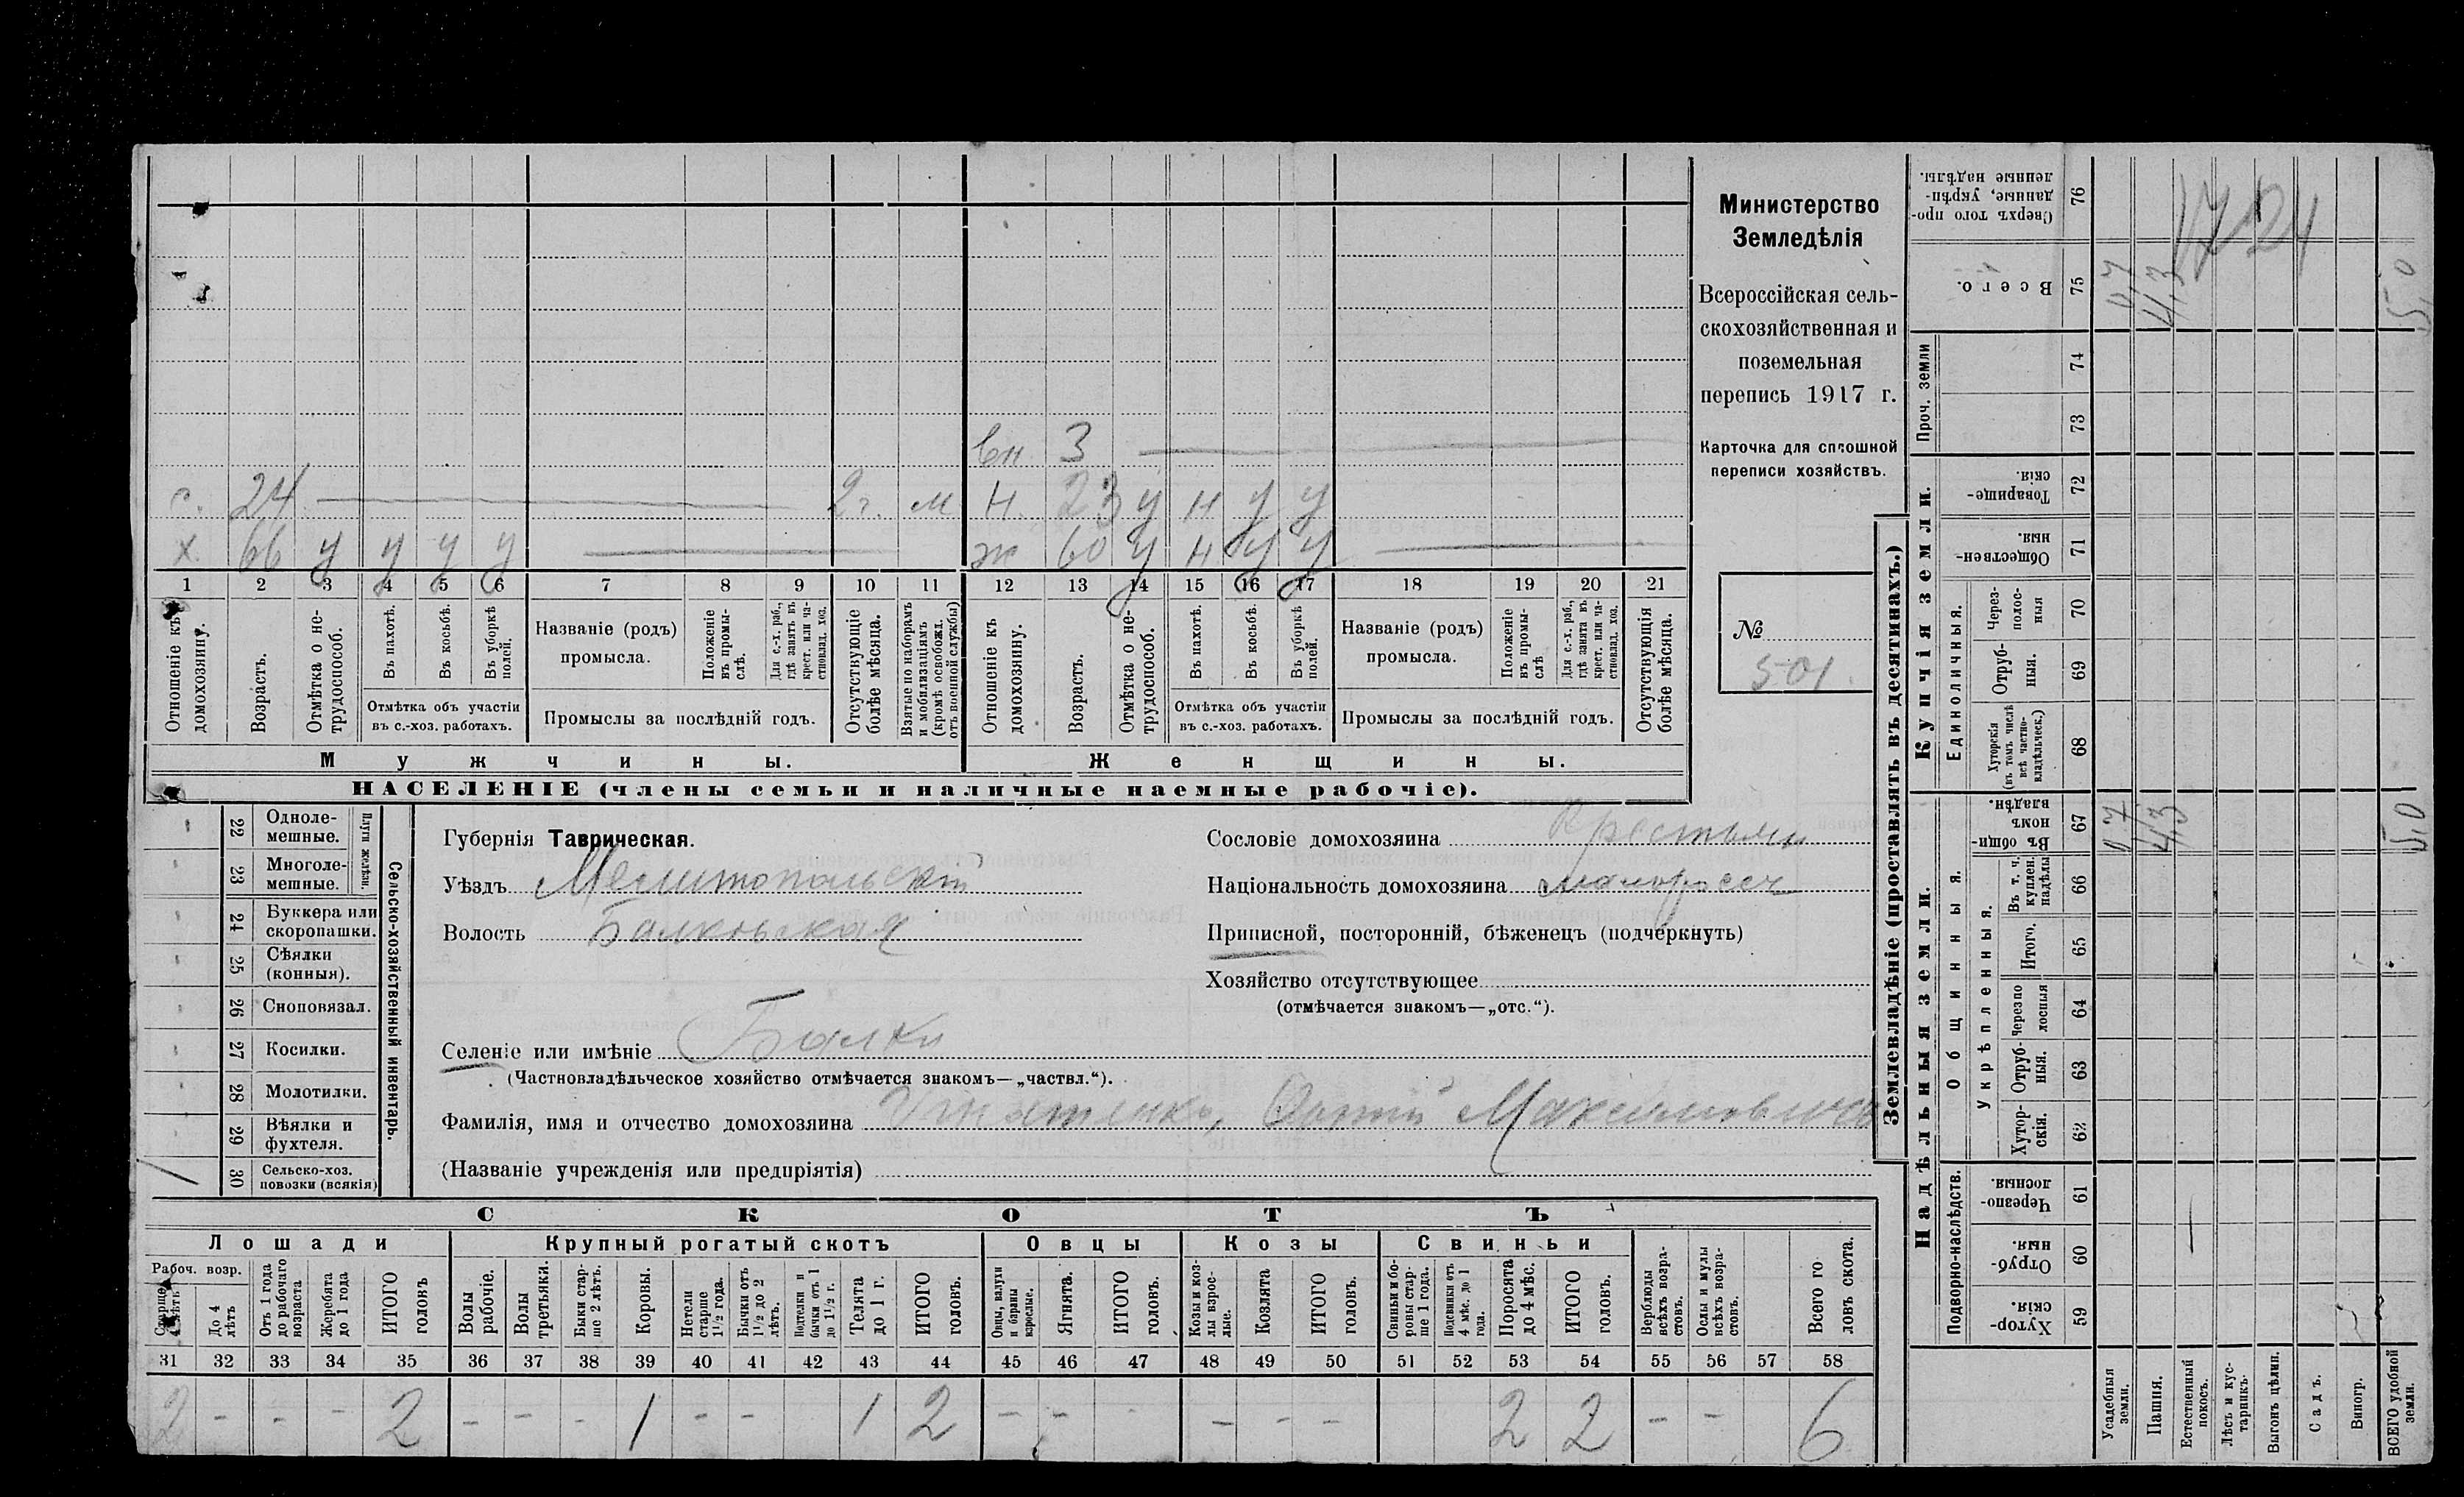 Министерство
Земледѣлія
Всероссійская сель-
скохозяйственная и
поземельная
перепись 1917 г.
Карточка для сплошной
переписи хозяйствъ.
№
501.
вн 3
с. 24 2г. м н. 23 у н у у
х. 66 у у у у ж 60 у н у у
1 2 3 4 5 6 7 8 9 10 11 12 13 14 15 16 17 18 19 20 21
Отношеніе къ домохозяину.
Возрастъ.
Отмѣтка о не-трудоспособ.
Въ пахотѣ.
Въ косьбѣ.
Въ уборкѣ полей.
Отмѣтка объ участіи
въ с.-хоз. работахъ.
Названіе (родъ)
промысла.
Положеніе въ промы-слѣ.
Для с.-х. раб., гдѣ занятъ въ крест. или ча-стновлад. хоз.
Промыслы за послѣдній годъ.
Отсутствующіе болѣе мѣсяца.
Взятые по наборамъ и мобилизаціямъ (кромѣ освобожд. отъ военной службы)
Отношеніе къ домохозяину.
Возрастъ.
Отмѣтка о не-трудоспособ.
Въ пахотѣ.
Въ косьбѣ.
Въ уборкѣ полей.
Отмѣтка объ участіи
въ с.-хоз. работахъ.
Названіе (родъ)
промысла.
Положеніе въ промы-слѣ
Для с.-х. раб., гдѣ занята въ крест. или ча-стновлад. хоз.
Промыслы за послѣдній годъ.
Отсутствующія болѣе мѣсяца.
Мужчины.
Женщины.
НАСЕЛЕНІЕ (члены семьи и наличные наемные рабочіе).
22 Одноле-мешные.
23 Многоле-мешные.
Плуги желѣзн.
24 Буккера или скоропашки.
25 Сѣялки (конныя).
26 Сноповязал.
27 Косилки.
28 Молотилки.
29 Вѣялки и фухтеля.
1 30 Сельско-хоз. повозки (всякія)
Сельско-хозяйственный инвентарь.
Губернія Таврическая.
Уѣздъ Мелитопольскій
Волость Балковская
Сословіе домохозяина Крестьян
Національность домохозяина малоросс
Приписной, посторонній, бѣженецъ (подчеркнуть)
Хозяйство отсутствующее
(отмѣчается знакомъ—„отс.“).
Селеніе или имѣніе Балки
(Частновладѣльческое хозяйство отмѣчается знакомъ—„частвл.“).
Фамилія, имя и отчество домохозяина Игнатенко, Максимович
(Названіе учрежденія или предпріятія)
СКОТЪ
Лошади
Крупный рогатый скотъ
Овцы
Козы
Свиньи
Рабоч. возр.
Старше 4 лѣтъ
До 4 лѣтъ
Отъ 1 года до рабочаго возраста
Жеребята до 1 года
ИТОГО головъ
Волы рабочіе.
Волы третьяки.
Быки стар-ше 2 лѣтъ.
Коровы.
Нетели старше 1½ года.
Бычки отъ 1½ до 2 лѣтъ.
Подтелки и бычки отъ 1 до 1½ г.
Телята до 1 г.
ИТОГО головъ.
Овцы, валухи и бараны взрослые.
Ягнята.
ИТОГО головъ.
Козы и коз-лы взрос-лые.
Козлята
ИТОГО головъ.
Свиньи и бо-ровы стар-ше 1 года.
Подсвинки отъ 4 мѣс. до 1 года.
Поросята до 4 мѣс.
ИТОГО головъ.
Верблюды всѣхъ возра-стовъ.
Ослы и мулы всѣхъ возра-стовъ.
Всего го-ловъ скота.
31 32 33 34 35 36 37 38 39 40 41 42 43 44 45 46 47 48 49 50 51 52 53 54 55 56 57 58
2 - - - 2 - - - 1 - - 1 2 - - - - - - 2 2 - - 6
Землевладѣніе (проставлять въ десятинахъ.)
Купчія земли.
Надѣльныя земли.
Сверхъ того про-данные, укрѣп-ленные надѣлы.
76
Всего.
75 0,7 4,3 5,0
1724
Проч. земли
74
73
Товарище-скія.
72
Обществен-ныя.
71
Единоличныя.
Через-полос-ныя
70
Отруб-ныя.
69
Хуторскія (въ томъ числѣ всѣ частно-владѣльческ.)
68
Общинныя.
Въ общи-номъ владѣн.
67 0,7 4,3 5,0
Укрѣпленныя.
Въ т. ч. куплен. надѣлы
66
Итого.
65
Черезпо лосныя
64
Отруб-ныя.
63
Хутор-скія.
62
Подворно-наслѣдств.
Черезпо-лосныя.
61
Отруб-ныя.
60
Хутор-скія.
59
Усадебныя земли.
Пашня.
Естественный покосъ.
Лѣсъ и кус-тарникъ.
Выгонъ цѣлин.
Садъ.
Виногр.
ВСЕГО удобной земли.